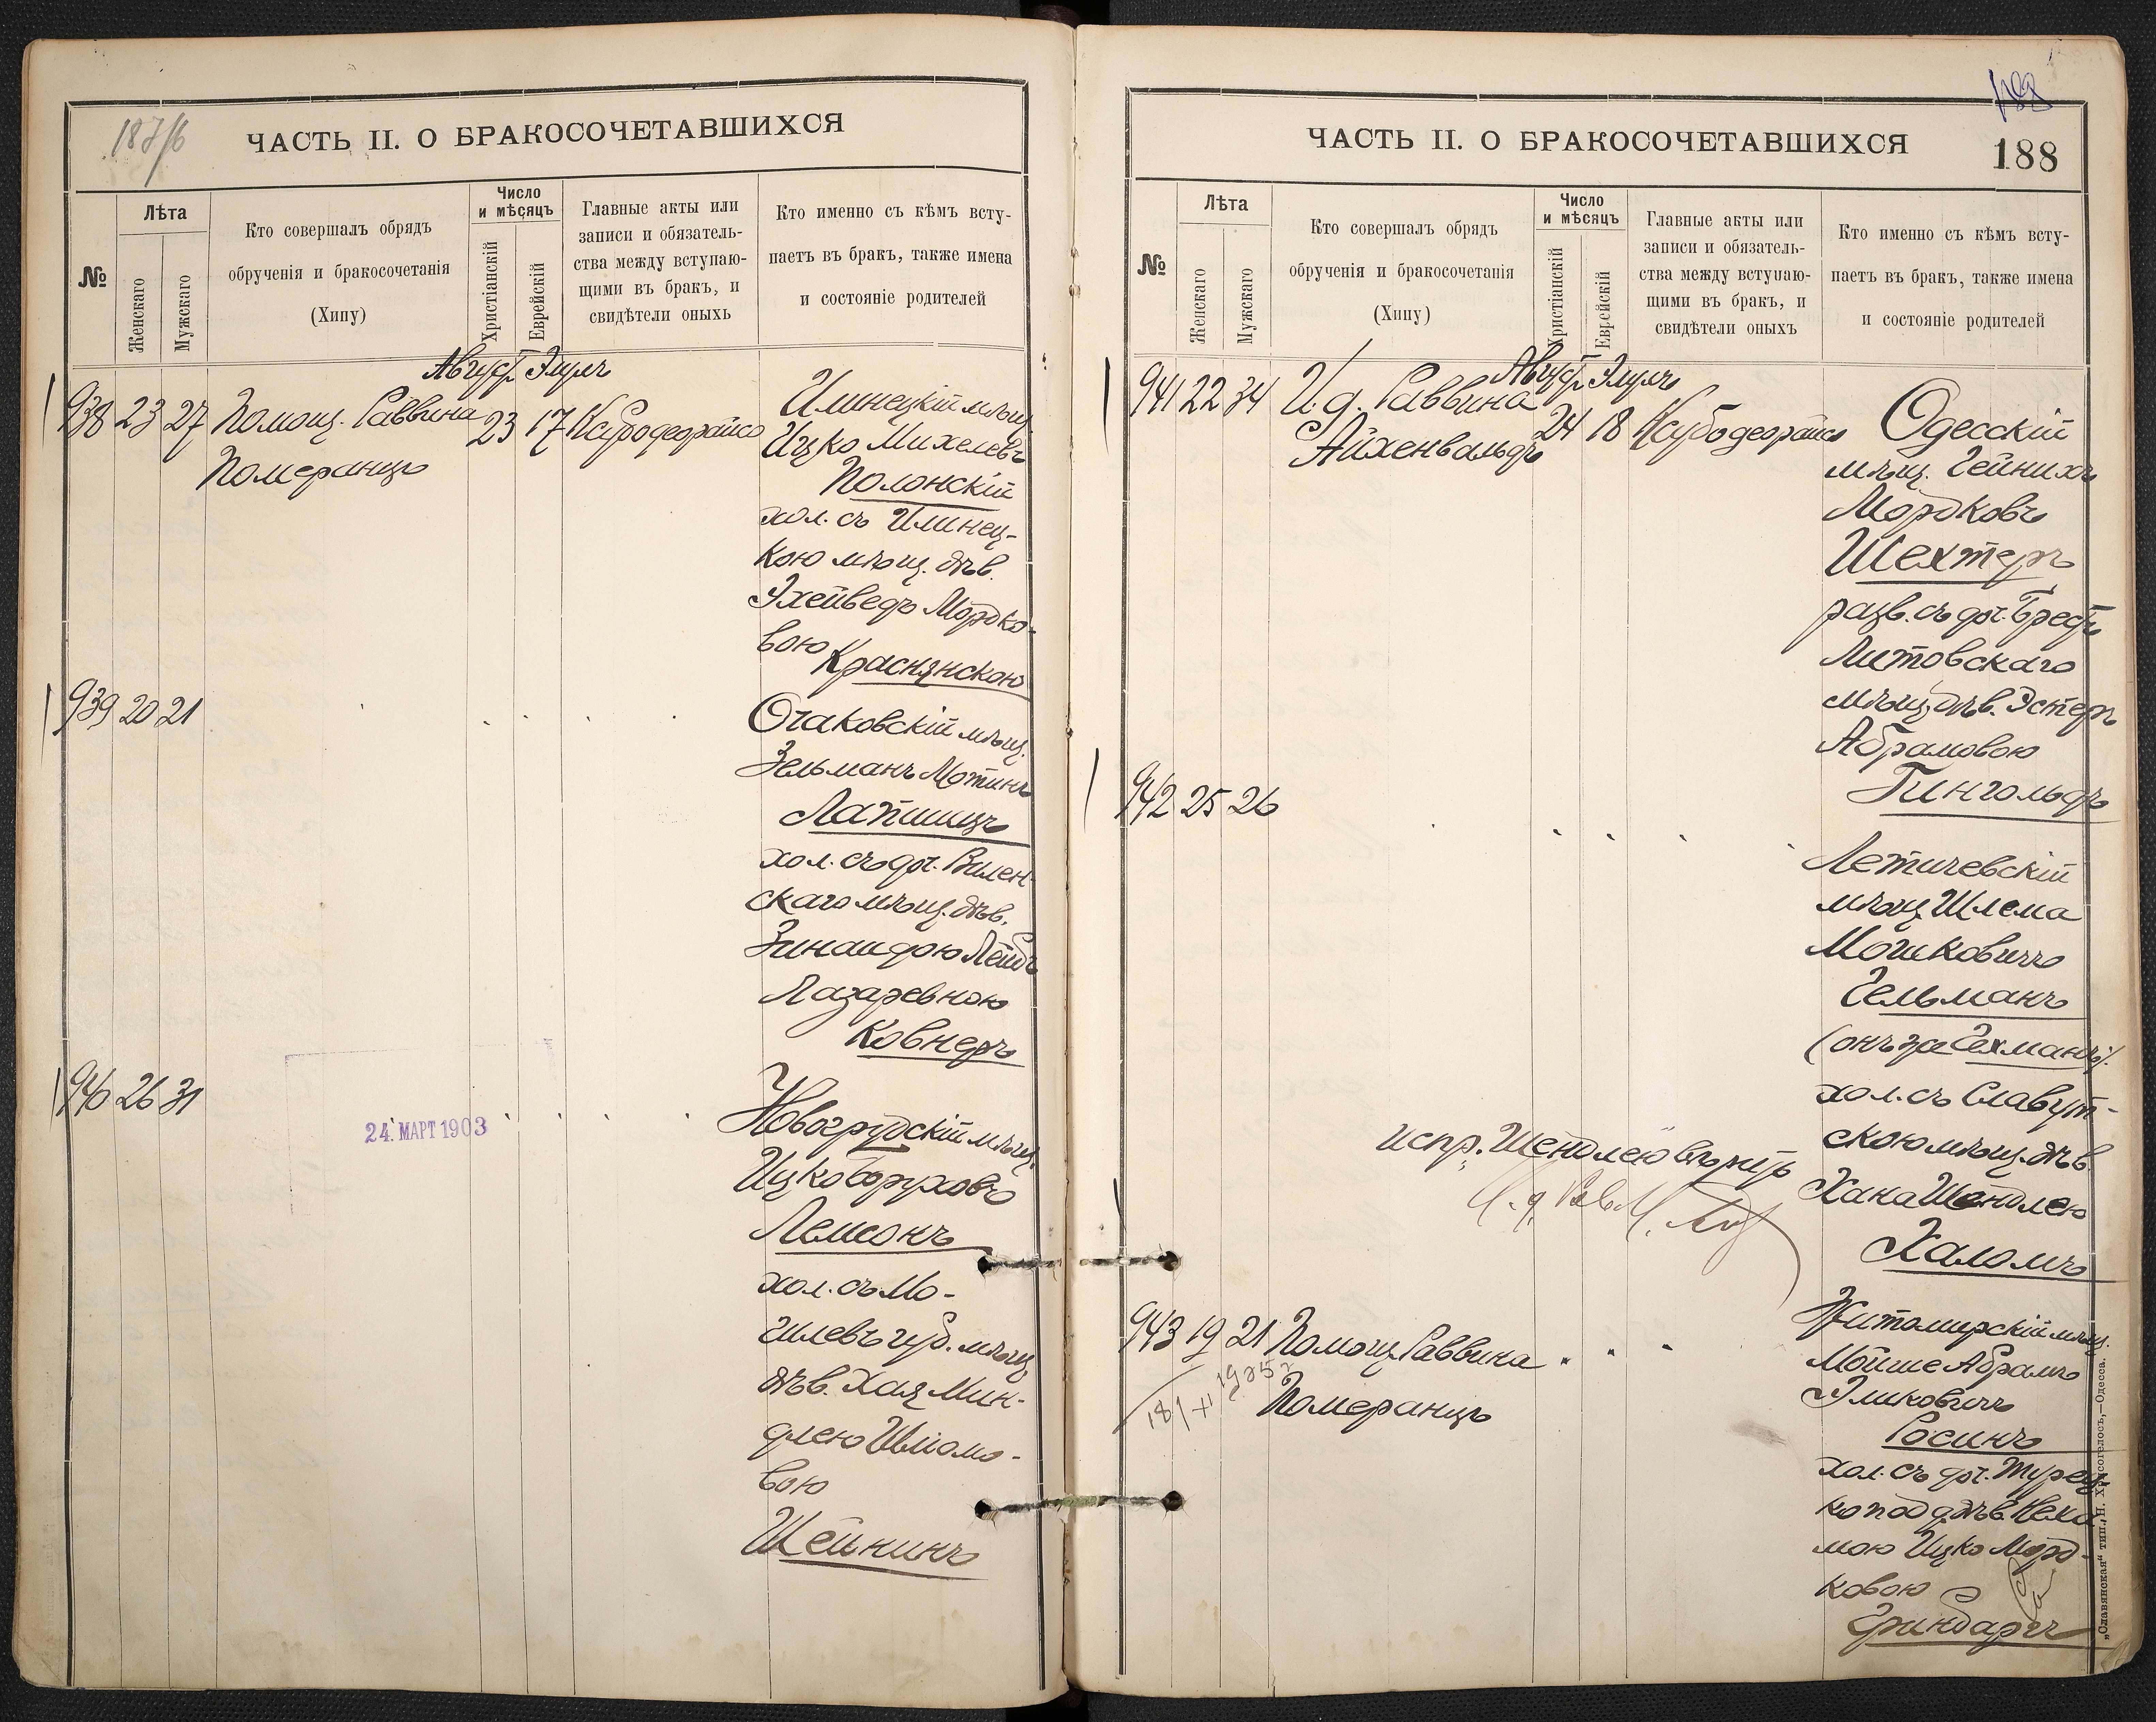 187/б
ЧАСТЬ II. О БРАКОСОЧЕТАВШИХСЯ
№
Лѣта
Женскаго
Мужскаго
Кто совершалъ обрядъ
обрученія и бракосочетанія
(Хипу)
Число
и мѣсяцъ
Христіанскій
Еврейскій
Главные акты или
записи и обязатель-
ства между вступаю-
щими въ бракъ, и
свидѣтели оныхъ
Кто именно съ кѣмъ всту-
паетъ въ бракъ, также имена
и состояніе родителей
Август. Элулъ
938 23 27 Помощ. Раввина 23 17
Померанцъ
Илинецкій мѣщ.
Ицко Михелевъ
Полонскій
хол. съ Илинец-
кою мѣщ. дѣв.
Эхейведъ Мордко-
вою
Краснянскою
939 20 21
Очаковскій мѣщ.
Зельманъ Мотинъ
Лапшицъ
хол. съ доч. Вилен-
скаго мѣщ. дѣв.
Зинаидою Лейб.
Лазаревною
Ковнеръ
940 26 31
24. МАРТ 1903
Новогрудскій мѣщ.
Ицко Боруховъ
Лемсонъ
хол. съ Мо-
гилевъ губ. мѣщ.
дѣв. Хая Мин-
длею Шломо-
вою
Шейнинъ
ЧАСТЬ II. О БРАКОСОЧЕТАВШИХСЯ
188
№
Лѣта
Женскаго
Мужскаго
Кто совершалъ обрядъ
обрученія и бракосочетанія
(Хипу)
Число
и мѣсяцъ
Христіанскій
Еврейскій
Главные акты или
записи и обязатель-
ства между вступаю-
щими въ бракъ, и
свидѣтели оныхъ
Кто именно съ кѣмъ всту-
паетъ въ бракъ, также имена
и состояніе родителей
Август. Элулъ
941 22 34 И. д. Раввина 24 18
Айхенвальдъ
Одесскій
мѣщ. Гейнихъ
Мордковъ
Шехтеръ
разв. съ доч. Брестъ
Литовскаго
мѣщ. дѣв. Эстеръ
Абрамовою
Гингольдъ
942 25 26
Летичевскій
мѣщ. Шлема
Мошковичъ
Гельманъ
(онъ же Гехманъ).
хол. съ Славут-
скою мѣщ. дѣв.
Хана Шендлею
Халомъ
испр. Шендлею вѣрить
И. д. Рав.
943 19 21 Помощ. Раввина
Померанцъ
18/XI 1925 г
Житомирскій мѣщ.
Мойше Абрамъ
Эликовичъ
Росинъ
хол. съ доч. Турец-
ко под. дѣв. Неха-
мою Ицко Морд-
ковою
Гринбаргъ
„Славянская“ тип. Н. Хрисогелосъ,—Одесса.